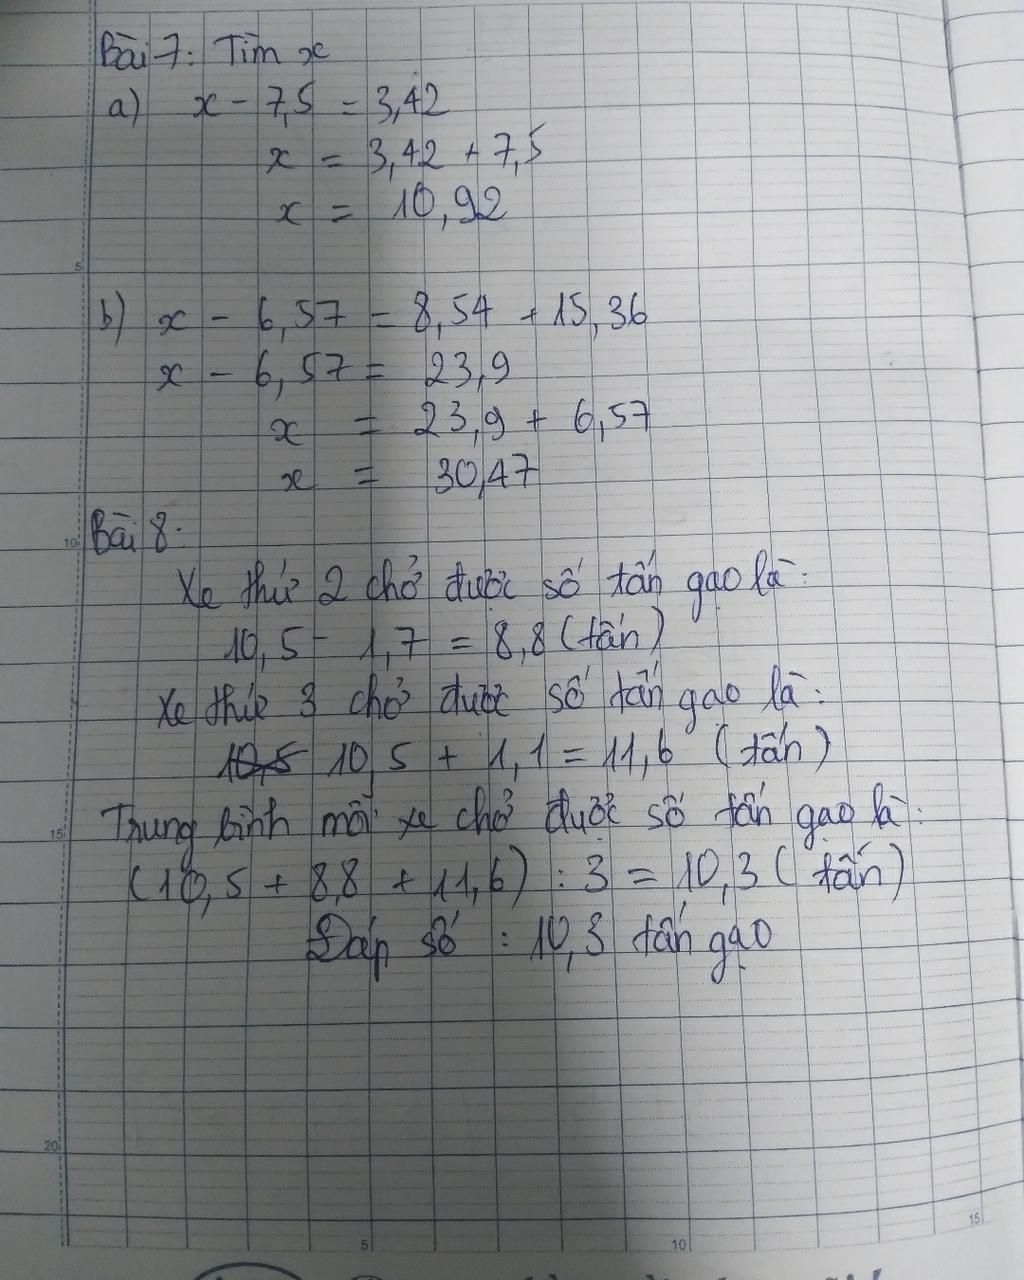 Bài 7: Tìm x
a) x - 7,5 = 3,42
x = 3,42 + 7,5
x = 10,92
5
b) x - 6,57 = 8,54 + 15,36
x - 6,57 = 23,9
x = 23,9 + 6,57
x = 30,47
10
Bài 8:
Xe thứ 2 chở được số tấn gạo là:
10,5 - 1,7 = 8,8 (tấn)
Xe thứ 3 chở được số tấn gạo là:
10,5 10,5 + 1,1 = 11,6 (tấn)
15
Trung bình mỗi xe chở được số tấn gạo là:
(10,5 + 8,8 + 11,6) : 3 = 10,3 (tấn)
Đáp số : 10,3 tấn gạo
20
5 10 15